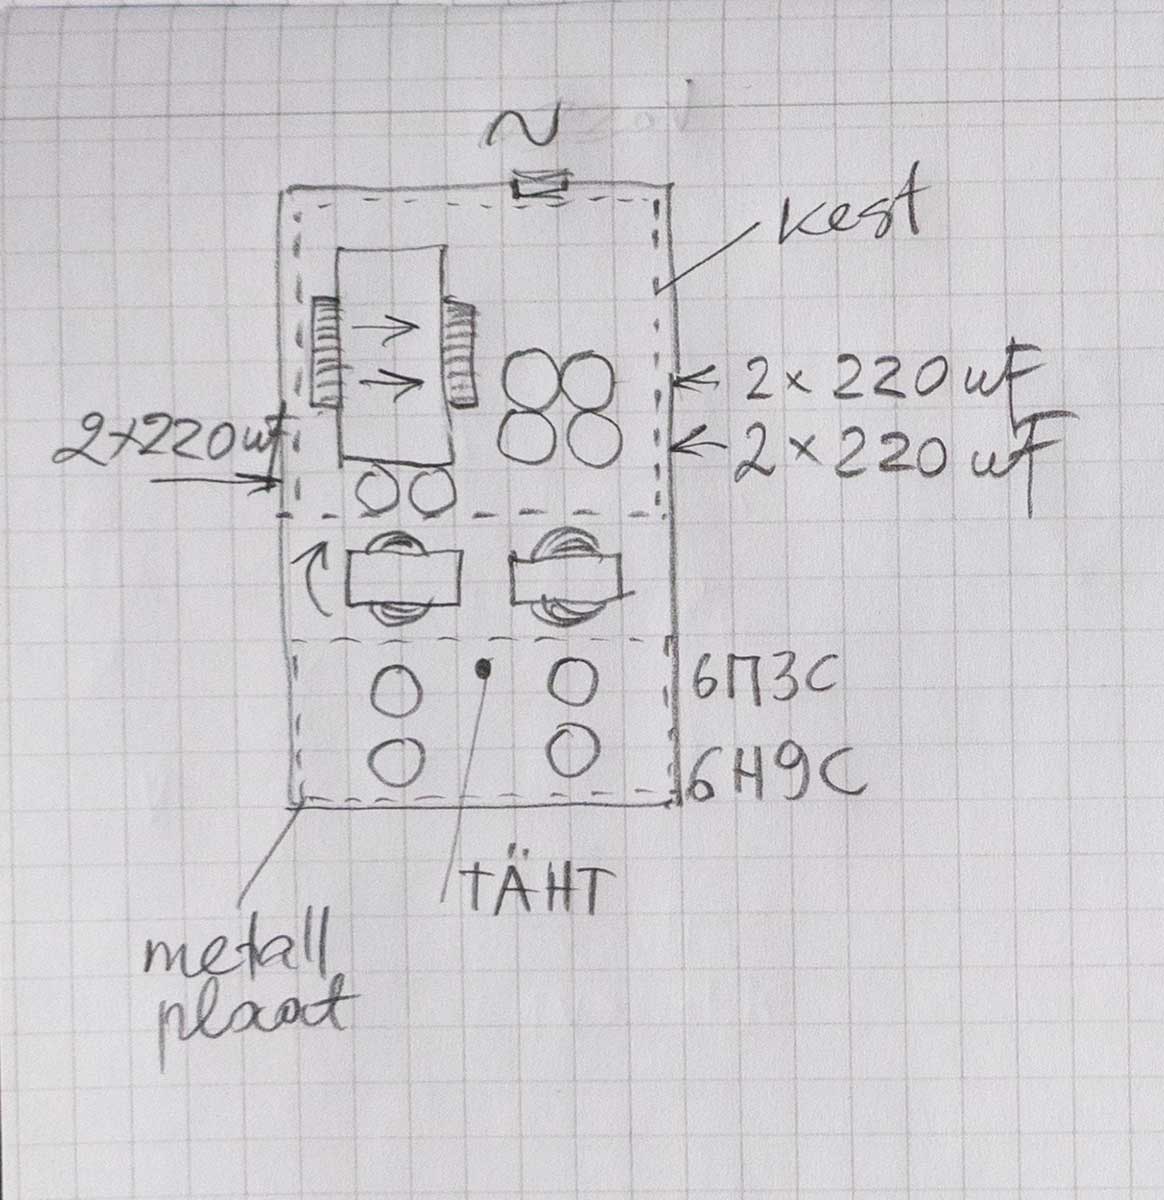 ~
kest
2x220uF
2x220uF
2x220uF
6П3С
6Н9С
TÄHT
metall
plaat